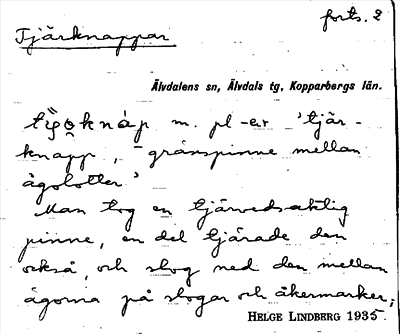 forts. 2
Tjärknappar
Älvdalens sn, Älvdals tg, Kopparbergs län.
m. pl -er 'tjär-
knapp, gränspinne mellan
ägolotter'
Man tog en tjärvedsaktig
pinne, en del tjärade den
också, och slog ned den mellan
ägorna på slogar och åkermarker;
HELGE LINDBERG 1935.